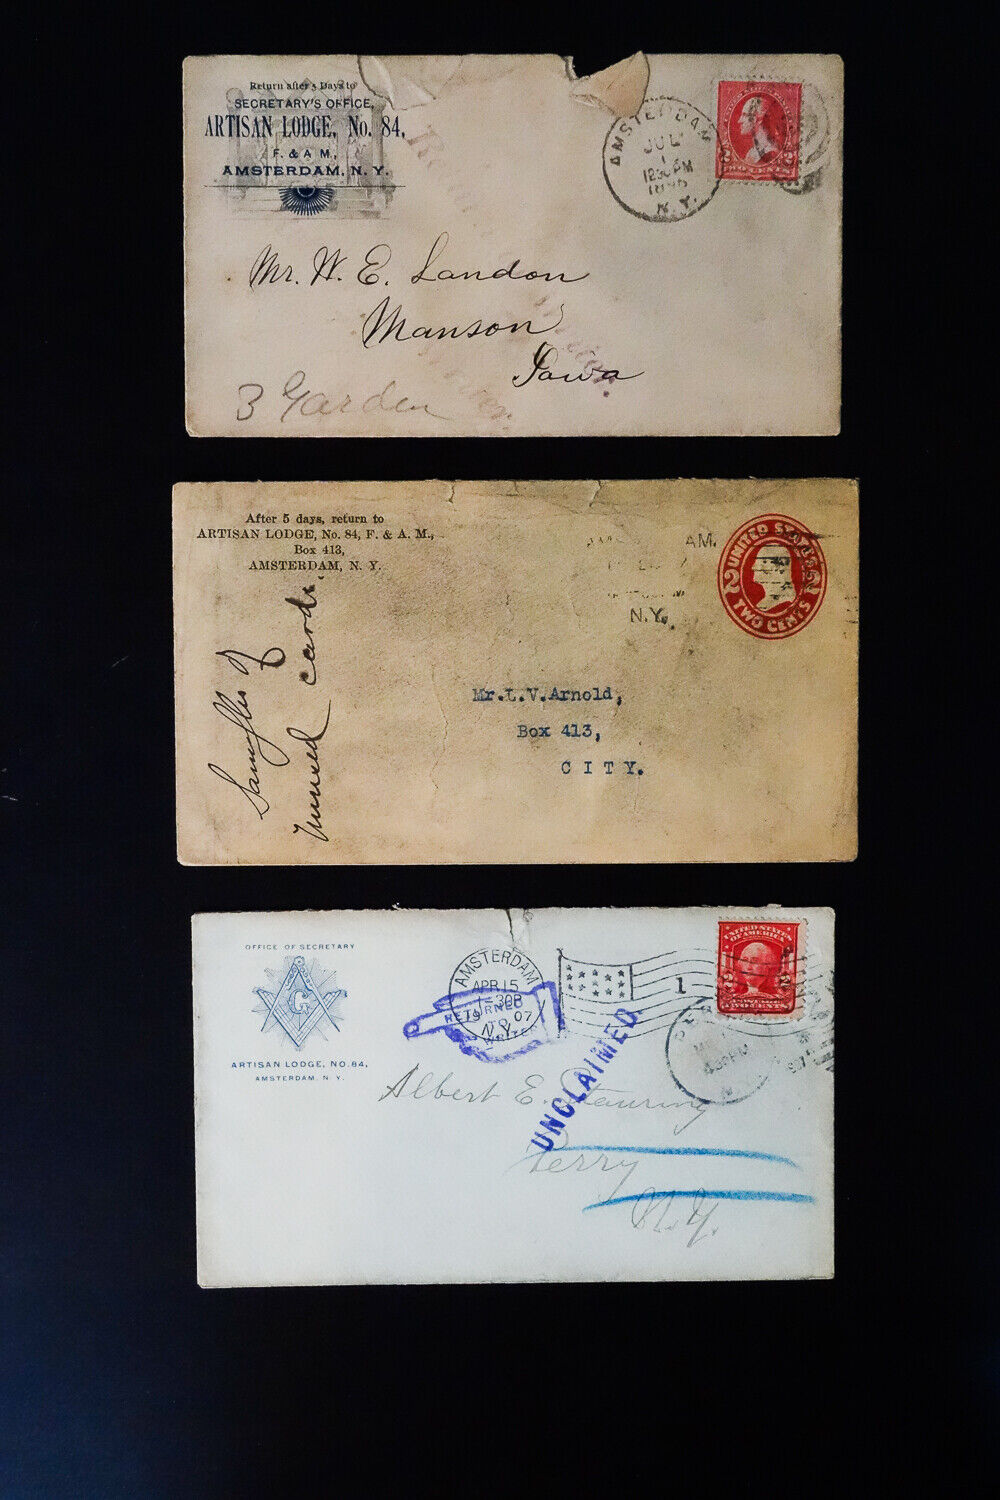 Return after 5 Days to
SECRETARY'S OFFICE,
ARTISAN LODGE, No. 84,
F. & A M,
AMSTERDAM, N. Y.
AMSTERDAM
JUL
1
1230PM
N.Y.
TWO CENTS
Mr. W. E. Landon
Manson
Iowa
3 Garden
After 5 days, return to
ARTISAN LODGE, No. 84, F. & A. M.,
Box 413,
AMSTERDAM, N. Y.
AM.
N.Y.
UNITED STATES
2 2
TWO CENTS
Samples of
cards
Mr.L.V.Arnold,
Box 413,
CITY.
OFFICE OF SECRETARY
G
ARTISAN LODGE, NO. 84,
AMSTERDAM, N. Y.
AMSTERDAM
APR 15
1-30P
07
N.Y.
RETURNED
TO
WRITER
1
UNITED STATES
OF AMERICA
TWO CENTS
UNCLAIMED
Albert E.
Perry
N.Y.